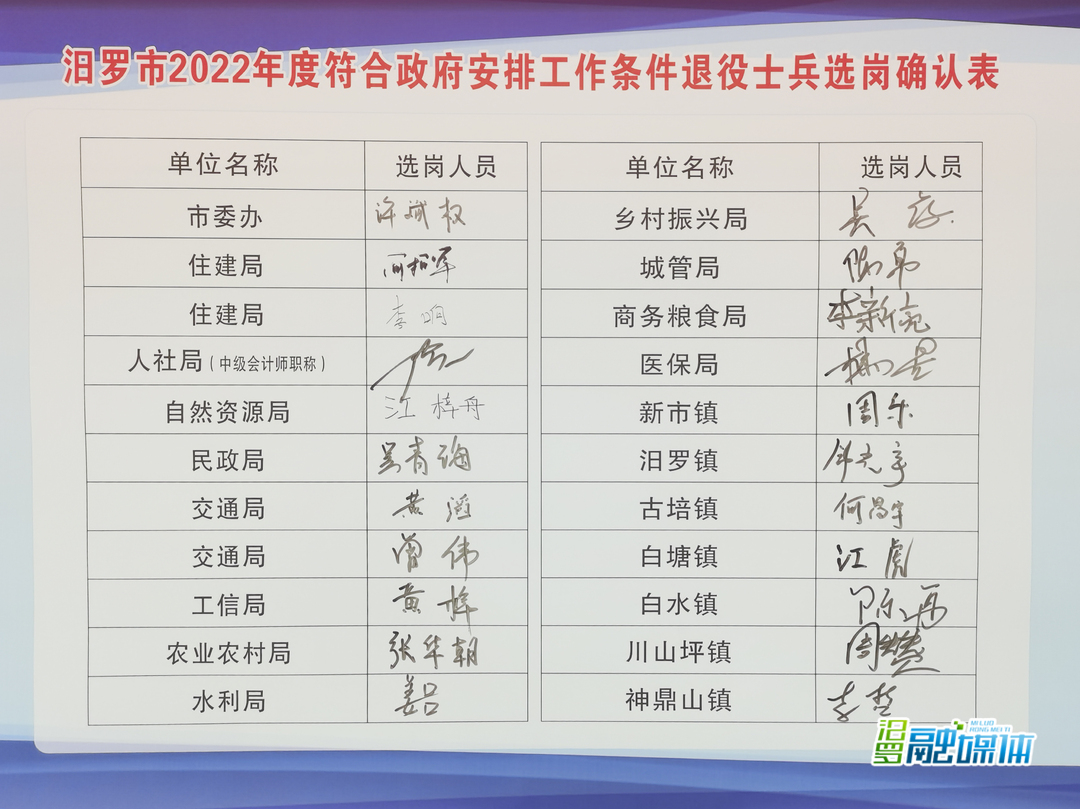 汨罗市2022年度符合政府安排工作条件退役士兵选岗确认表
单位名称 选岗人员
市委办 许斌权
住建局
住建局 李明
人社局（中级会计师职称）
自然资源局 江梓舟
民政局 吴青海
交通局 黄滔
交通局 曾伟
工信局 黄梓
农业农村局 张华朝
水利局 姜吕
单位名称 选岗人员
乡村振兴局 吴
城管局
商务粮食局 李新亮
医保局
新市镇 周乐
汨罗镇
古培镇 何昌宇
白塘镇 江虎
白水镇
川山坪镇 周
神鼎山镇 李哲
汨罗融媒体
MI LUO
RONG MEI TI